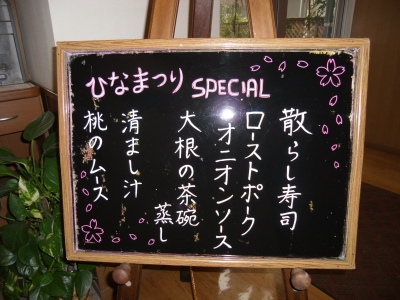 ひなまつり SPECIAL
散らし寿司
ローストポーク
オニオンソース
大根の茶碗
蒸し
清まし汁
桃のムース